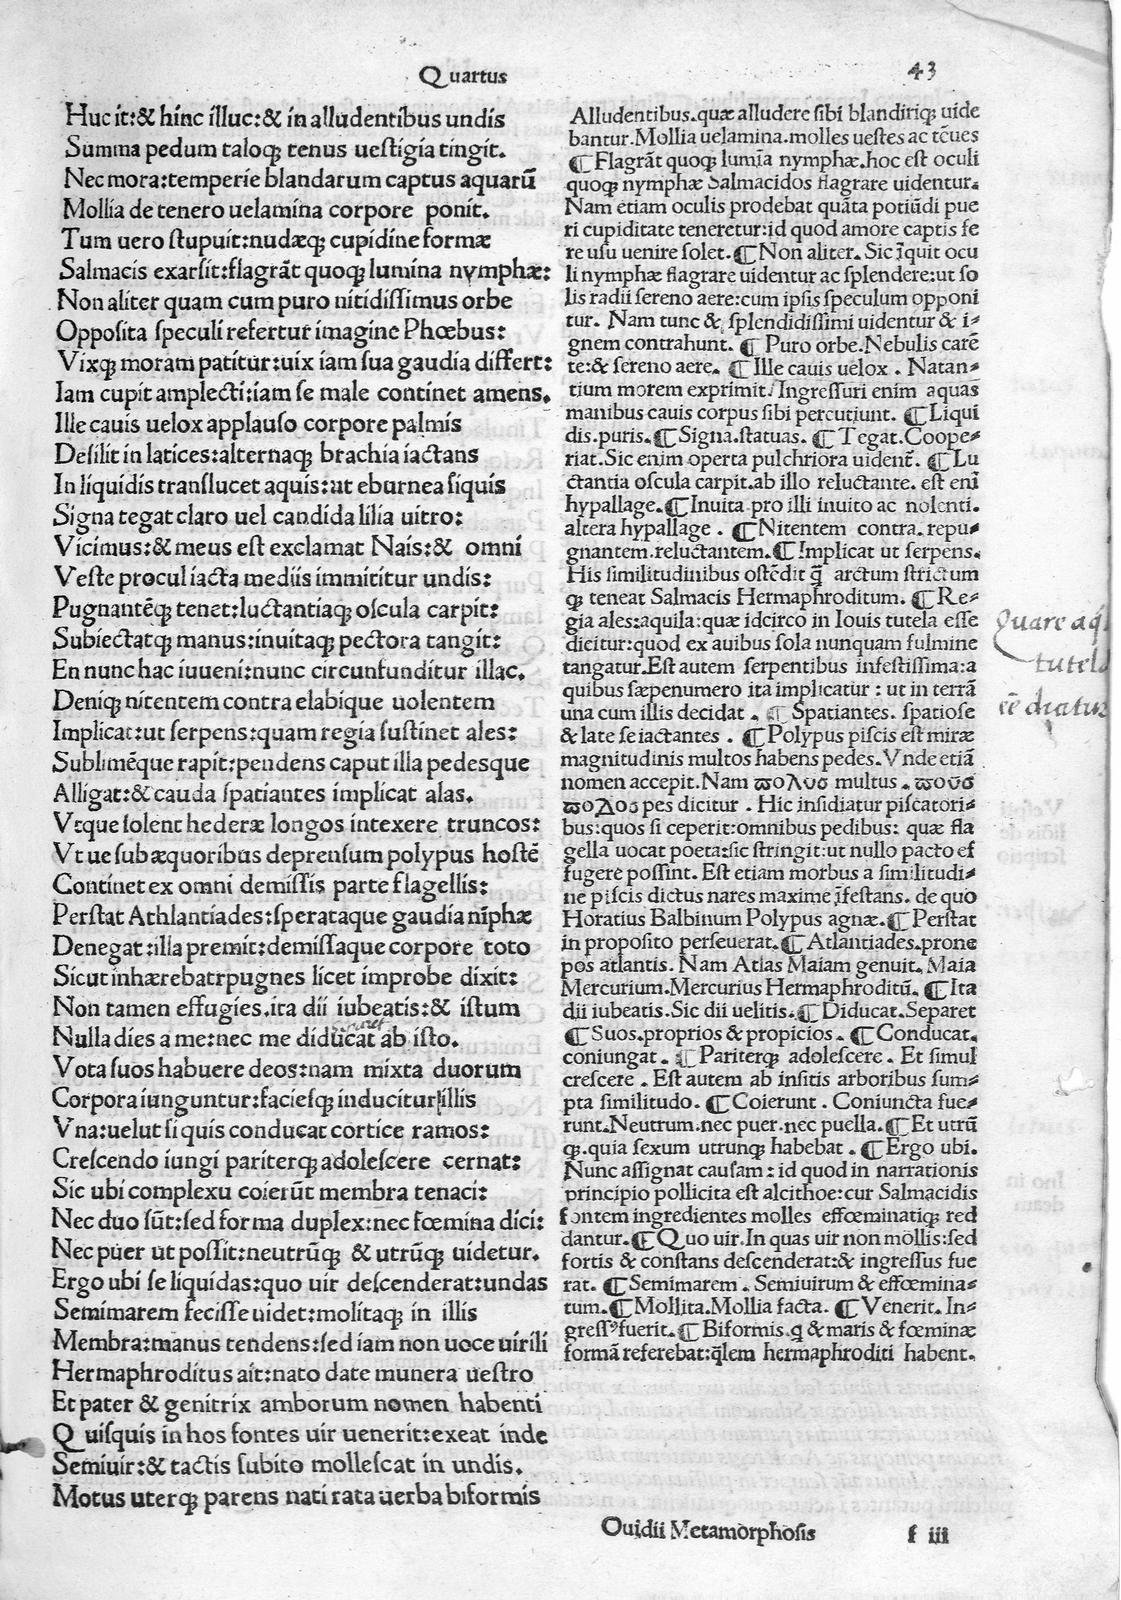 Quartus
43
Huc it:& hinc illuc:& in alludentibus undis
Summa pedum taloqꝫ tenus uestigia tingit.
Nec mora:temperie blandarum captus aquarū
Mollia de tenero uelamina corpore ponit.
Tum uero stupuit:nudæqꝫ cupidine formæ
Salmacis exarsit:flagrāt quoqꝫ lumina nymphæ:
Non aliter quam cum puro nitidissimus orbe
Opposita speculi refertur imagine Phœbus:
Vixqꝫ moram patitur:uix iam sua gaudia differt:
Iam cupit amplecti:iam se male continet amens.
Ille cauis uelox applauso corpore palmis
Desilit in latices:alternaqꝫ brachia iactans
In liquidis translucet aquis:ut eburnea siquis
Signa tegat claro uel candida lilia uitro:
Vicimus:& meus est exclamat Nais:& omni
Veste procul iacta mediis immititur undis:
Pugnantēqꝫ tenet:luctantiaqꝫ oscula carpit:
Subiectatqꝫ manus:inuitaqꝫ pectora tangit:
En nunc hac iuueni:nunc circunfunditur illac.
Deniqꝫ nitentem contra elabique uolentem
Implicat:ut serpens:quam regia sustinet ales:
Sublimēque rapit:pendens caput illa pedesque
Alligat:& cauda spatiantes implicat alas.
Vtque solent hederæ longos intexere truncos:
Vt ue sub æquoribus deprensum polypus hostē
Continet ex omni demissis parte flagellis:
Perstat Athlantiades:sperataque gaudia nīphæ
Denegat:illa premit:demissaque corpore toto
Sicut inhærebat:pugnes licet improbe dixit:
Non tamen effugies.ita dii iubeatis:& istum
Nulla dies a me:nec me diducat ab isto.
Vota suos habuere deos:nam mixta duorum
Corpora iunguntur:faciesqꝫ inducitur illis
Vna:uelut si quis conducat cortice ramos:
Crescendo iungi pariterqꝫ adolescere cernat:
Sic ubi complexu coierūt membra tenaci:
Nec duo sūt:sed forma duplex:nec fœmina dici:
Nec puer ut possit:neutrūqꝫ & utrūqꝫ uidetur.
Ergo ubi se liquidas:quo uir descenderat:undas
Semimarem fecisse uidet:molitaqꝫ in illis
Membra:manus tendens:sed iam non uoce uirili
Hermaphroditus ait:nato date munera uestro
Et pater & genitrix amborum nomen habenti
Quisquis in hos fontes uir uenerit:exeat inde
Semiuir:& tactis subito mollescat in undis.
Motus uterqꝫ parens nati rata uerba biformis
Alludentibus.quæ alludere sibi blandiriqꝫ uide
bantur.Mollia uelamina.molles uestes ac tēues
¶Flagrāt quoqꝫ lumīa nymphæ.hoc est oculi
quoqꝫ nymphæ Salmacidos flagrare uidentur.
Nam etiam oculis prodebat quāta potiūdi pue
ri cupiditate teneretur:id quod amore captis fe
re usu uenire solet.¶Non aliter.Sic īquit ocu
li nymphæ flagrare uidentur ac splendere:ut so
lis radii sereno aere:cum ipsis speculum opponi
tur. Nam tunc & splendidissimi uidentur & i-
gnem contrahunt.¶Puro orbe.Nebulis carē
te:& sereno aere.¶Ille cauis uelox. Natan-
tium morem exprimit.Ingressuri enim aquas
manibus cauis corpus sibi percutiunt.¶Liqui
dis.puris.¶Signa.statuas.¶Tegat.Coope-
riat.Sic enim operta pulchriora uidenť.¶Lu
ctantia oscula carpit.ab illo reluctante. est enī
hypallage.¶Inuita pro illi inuito ac nolenti.
altera hypallage.¶Nitentem contra. repu-
gnantem.reluctantem.¶Implicat ut serpens.
His similitudinibus ostēdit q̄ arctum strictum
qꝫ teneat Salmacis Hermaphroditum.¶Re-
gia ales:aquila:quæ idcirco in Iouis tutela esse
dicitur:quod ex auibus sola nunquam fulmine
tangatur.Est autem serpentibus infestissima:a
quibus sæpenumero ita implicatur: ut in terrā
una cum illis decidat.¶Spatiantes. spatiose
& late se iactantes.¶Polypus piscis est miræ
magnitudinis multos habens pedes.Vnde etiā
nomen accepit.Nam ϖολυσ multus. ϖουσ
ϖοδοσ pes dicitur. Hic insidiatur piscatori-
bus:quos si ceperit:omnibus pedibus: quæ fla
gella uocat poeta:sic stringit:ut nullo pacto ef
fugere possint. Est etiam morbus a similitudi-
ne piscis dictus nares maxime īfestans. de quo
Horatius Balbinum Polypus agnæ.¶Perstat
in proposito perseuerat.¶Atlantiades.prone
pos atlantis. Nam Atlas Maiam genuit. Maia
Mercurium.Mercurius Hermaphroditū.¶Ita
dii iubeatis.Sic dii uelitis.¶Diducat.Separet
¶Suos.proprios & propicios.¶Conducat.
coniungat.¶Pariterqꝫ adolescere. Et simul
crescere. Est autem ab insitis arboribus sum-
pta similitudo.¶Coierunt. Coniuncta fue-
runt.Neutrum.nec puer.nec puella.¶Et utrū
qꝫ.quia sexum utrunqꝫ habebat.¶Ergo ubi.
Nunc assignat causam: id quod in narrationis
principio pollicita est alcithoe:cur Salmacidis
fontem ingredientes molles effœminatiqꝫ red
dantur.¶Quo uir.In quas uir non mollis:sed
fortis & constans descenderat:& ingressus fue
rat.¶Semimarem. Semiuirum & effœmina-
tum.¶Mollita.Mollia facta.¶Venerit. In-
gressꝰ fuerit.¶Biformis.q & maris & fœminæ
formā referebat:q̄lem hermaphroditi habent.
Quare aq̄
tutela
eē dicatur
Ouidii Metamorphosis
f iii